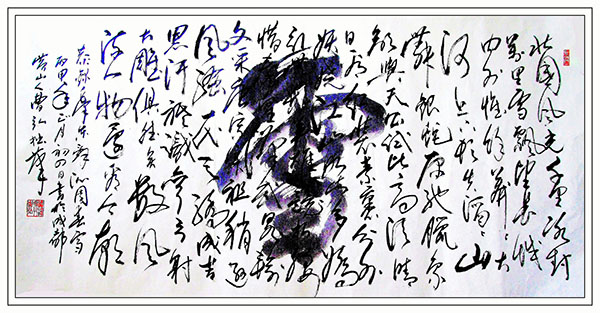 北国风光千里冰封
万里雪飘望长城
内外惟余莽莽大
河上下顿失滔滔山
舞银蛇原驰腊象
欲与天公试比高须晴
日看红装素裹分外
妖娆江山如此多娇
引无数英雄竞折腰
惜秦皇汉武略输
文采唐宗宋祖稍逊
风骚一代天骄成吉
思汗只识弯弓射
大雕俱往矣数风
流人物还看今朝
恭录毛泽东词沁园春雪
丙申年正月初四日书于成都
营山人曹弘
雪